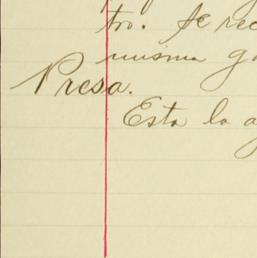 tro. Se rec
misma g
Presa.
Esta la a